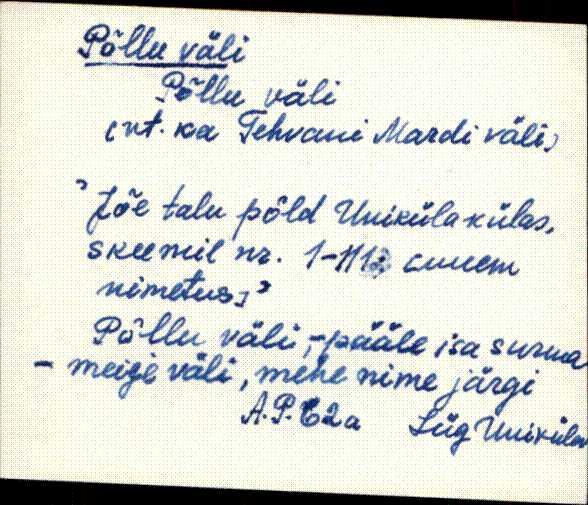 Põllu väli
Põllu väli
(vt. ka Tehvani Mardi väli)
"Jõe talu põld Uniküla külas,
skeemil nr. 1-111 ennem
nimetus,"
Põllu väli, - pääle isa surma
- meije väli, mehe nime järgi
A.P. 62a Lüg Uniküla